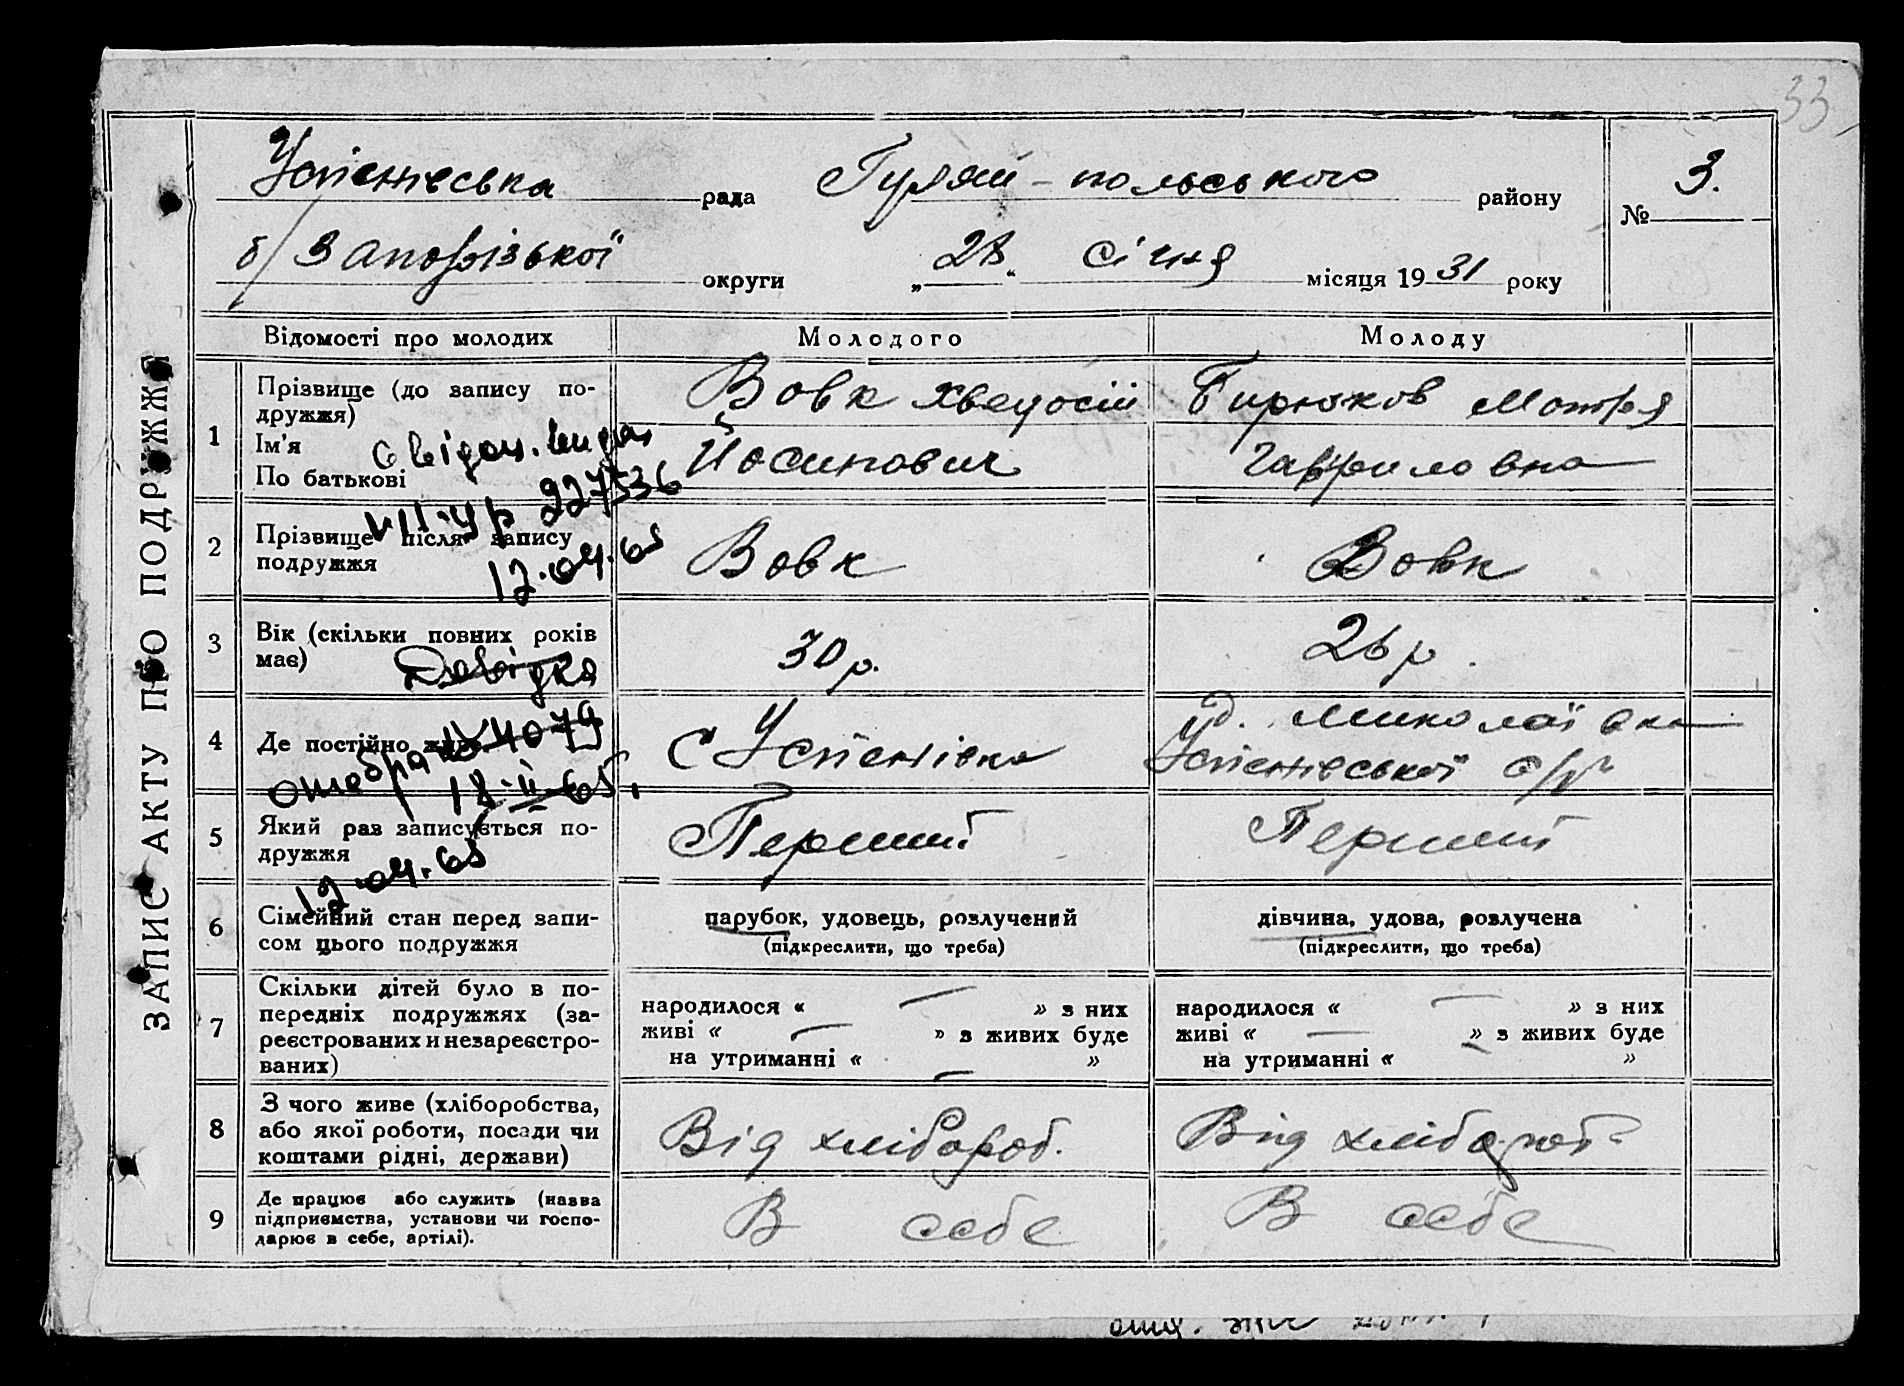 33
ЗАПИС АКТУ ПРО ПОДРУЖЖЯ
Успенівська рада Гуляй-польського району № 3.
б/Запорізької округи „28“ січня місяця 1931 року
Відомості про молодих Молодого Молоду
1 Прізвище (до запису подружжя)
Ім'я
По батькові
Вовк Хведосій
Йосипович
Бирюков Мотря
Гавриловна
2 Прізвище після запису
подружжя
Вовк Вовк
3 Вік (скільки повних років
має)
30 р. 26 р.
4 Де постійно живе
С Успенівка
д. Миколаївка
Успенівської с/р
5 Який раз записується по-
дружжя
Перший Перший
6 Сімейний стан перед запи-
сом цього подружжя
парубок, удовець, розлучений
(підкреслити, що треба)
дівчина, удова, розлучена
(підкреслити, що треба)
7 Скільки дітей було в по-
передніх подружжях (за-
реєстрованих и незареєстро-
ваних)
народилося « — » з них
живі « — » з живих буде
на утриманні « — »
народилося « — » з них
живі « — » з живих буде
на утриманні « — »
8 З чого живе (хліборобства,
або якої роботи, посади чи
коштами рідні, держави)
Від хлібороб. Від хлібороб
9 Де працює або служить (назва
підприємства, установи чи госпо-
дарює в себе, артілі).
В себе В себе
227536
12.04.65
Довідка
4079
18.II-65
12.04.65